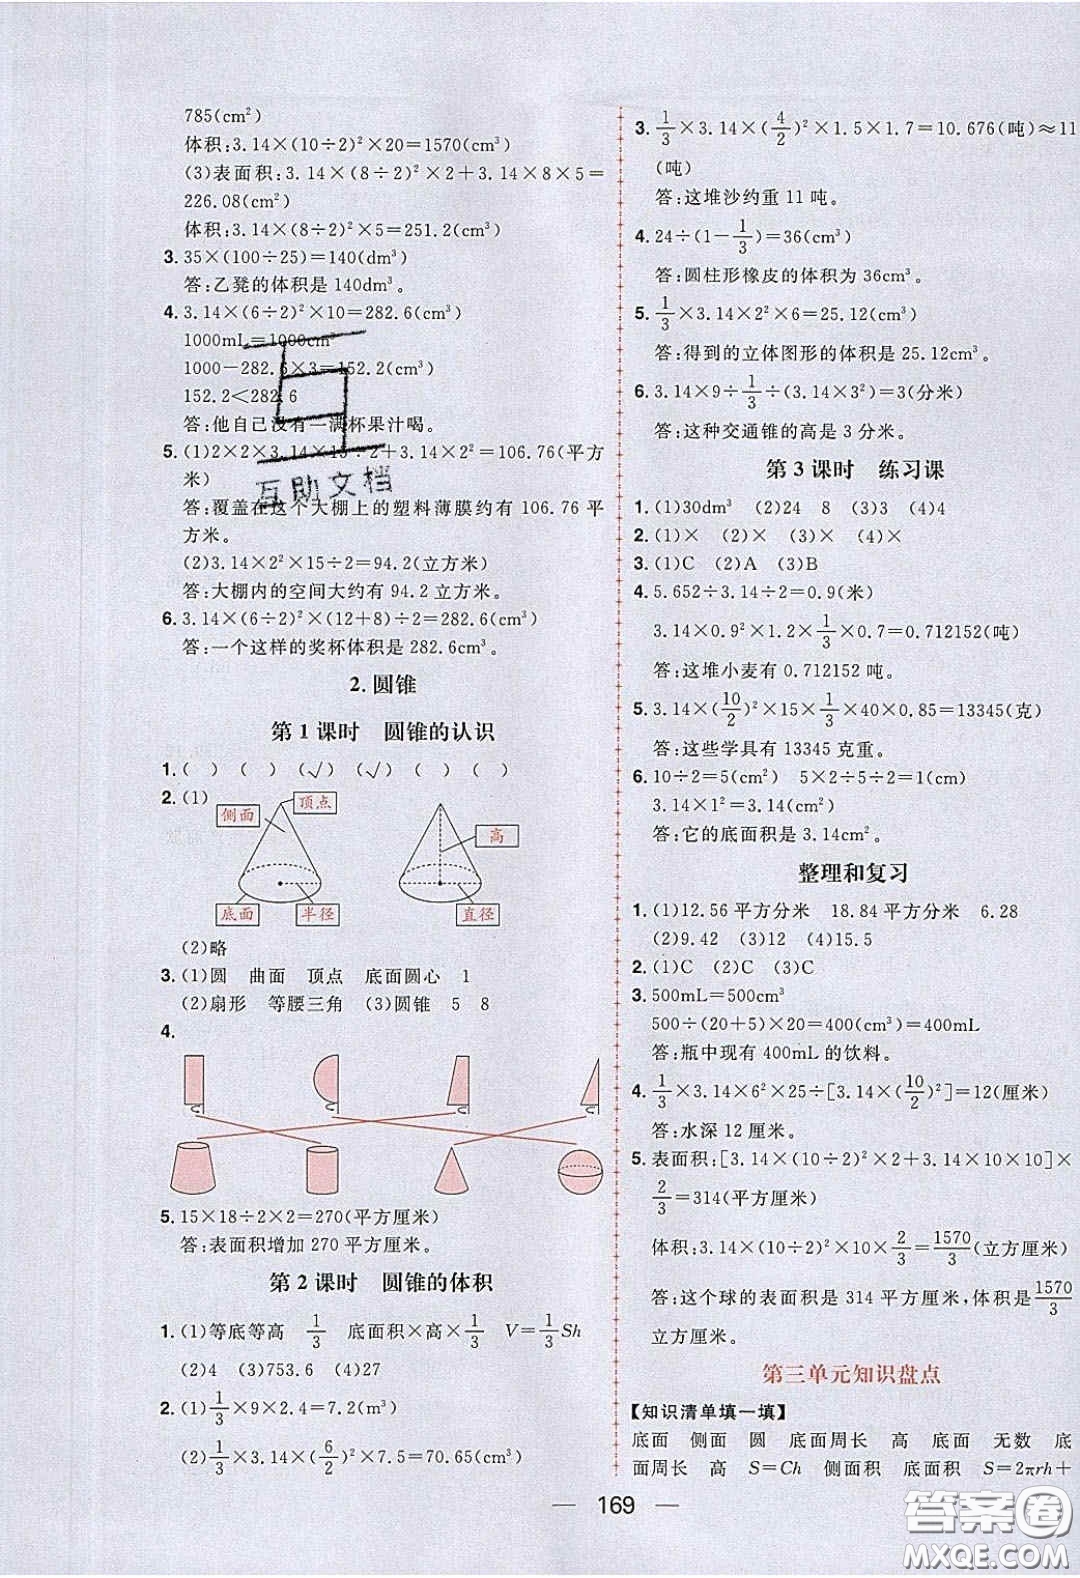 785(cm²)
体积:3.14×(10÷2)²×20=1570(cm³)
(3)表面积:3.14×(8÷2)²×2+3.14×8×5=
226.08(cm²)
体积:3.14×(8÷2)²×5=251.2(cm³)
3. 35×(100÷25)=140(dm³)
答:乙凳的体积是140dm³。
4. 3.14×(6÷2)²×10=282.6(cm³)
1000mL=1000cm³
1000-282.6×3=152.2(cm³)
152.2<282.6
答:他自己没有一满杯果汁喝。
5. (1)2×2×3.14×15÷2+3.14×2²=106.76(平方
米)
答:覆盖在这个大棚上的塑料薄膜约有106.76平
方米。
(2)3.14×2²×15÷2=94.2(立方米)
答:大棚内的空间大约有94.2立方米。
6. 3.14×(6÷2)²×(12+8)÷2=282.6(cm³)
答:一个这样的奖杯体积是282.6cm³。
2.圆锥
第1课时 圆锥的认识
1. ( ) ( ) (√) (√) ( ) ( )
2. (1)
侧面 顶点 高
底面 半径 直径
(2)略
3. (1)圆 曲面 顶点 底面圆心 1
(2)扇形 等腰三角 (3)圆锥 5 8
4.
5. 15×18÷2×2=270(平方厘米)
答:表面积增加270平方厘米。
第2课时 圆锥的体积
1. (1)等底等高 1/3 底面积×高×1/3 V=1/3Sh
(2)4 (3)753.6 (4)27
2. (1)1/3×9×2.4=7.2(m³)
(2)1/3×3.14×(6/2)²×7.5=70.65(cm³)
互助文档
3. 1/3×3.14×(4/2)²×1.5×1.7=10.676(吨)≈11
(吨)
答:这堆沙约重11吨。
4. 24÷(1-1/3)=36(cm³)
答:圆柱形橡皮的体积为36cm³。
5. 1/3×3.14×2²×6=25.12(cm³)
答:得到的立体图形的体积是25.12cm³。
6. 3.14×9÷1/3÷(3.14×3²)=3(分米)
答:这种交通锥的高是3分米。
第3课时 练习课
1. (1)30dm³ (2)24 8 (3)3 (4)4
2. (1)× (2)× (3)× (4)×
3. (1)C (2)A (3)B
4. 5.652÷3.14÷2=0.9(米)
3.14×0.9²×1.2×1/3×0.7=0.712152(吨)
答:这堆小麦有0.712152吨。
5. 3.14×(10/2)²×15×1/3×40×0.85=13345(克)
答:这些学具有13345克重。
6. 10÷2=5(cm²) 5×2÷5÷2=1(cm)
3.14×1²=3.14(cm²)
答:它的底面积是3.14cm²。
整理和复习
1. (1)12.56平方分米 18.84平方分米 6.28
(2)9.42 (3)12 (4)15.5
2. (1)C (2)C (3)C
3. 500mL=500cm³
500÷(20+5)×20=400(cm³)=400mL
答:瓶中现有400mL的饮料。
4. 1/3×3.14×6²×25÷[3.14×(10/2)²]=12(厘米)
答:水深12厘米。
5. 表面积:[3.14×(10÷2)²×2+3.14×10×10]×
2/3=314(平方厘米)
体积:3.14×(10÷2)²×10×2/3=1570/3(立方厘米)
答:这个球的表面积是314平方厘米,体积是1570/3
立方厘米。
第三单元知识盘点
【知识清单填一填】
底面 侧面 圆 底面周长 高 底面 无数 底
面周长 高 S=Ch 侧面积 底面积 S=2πrh+
169
答案圈
MXQE.COM